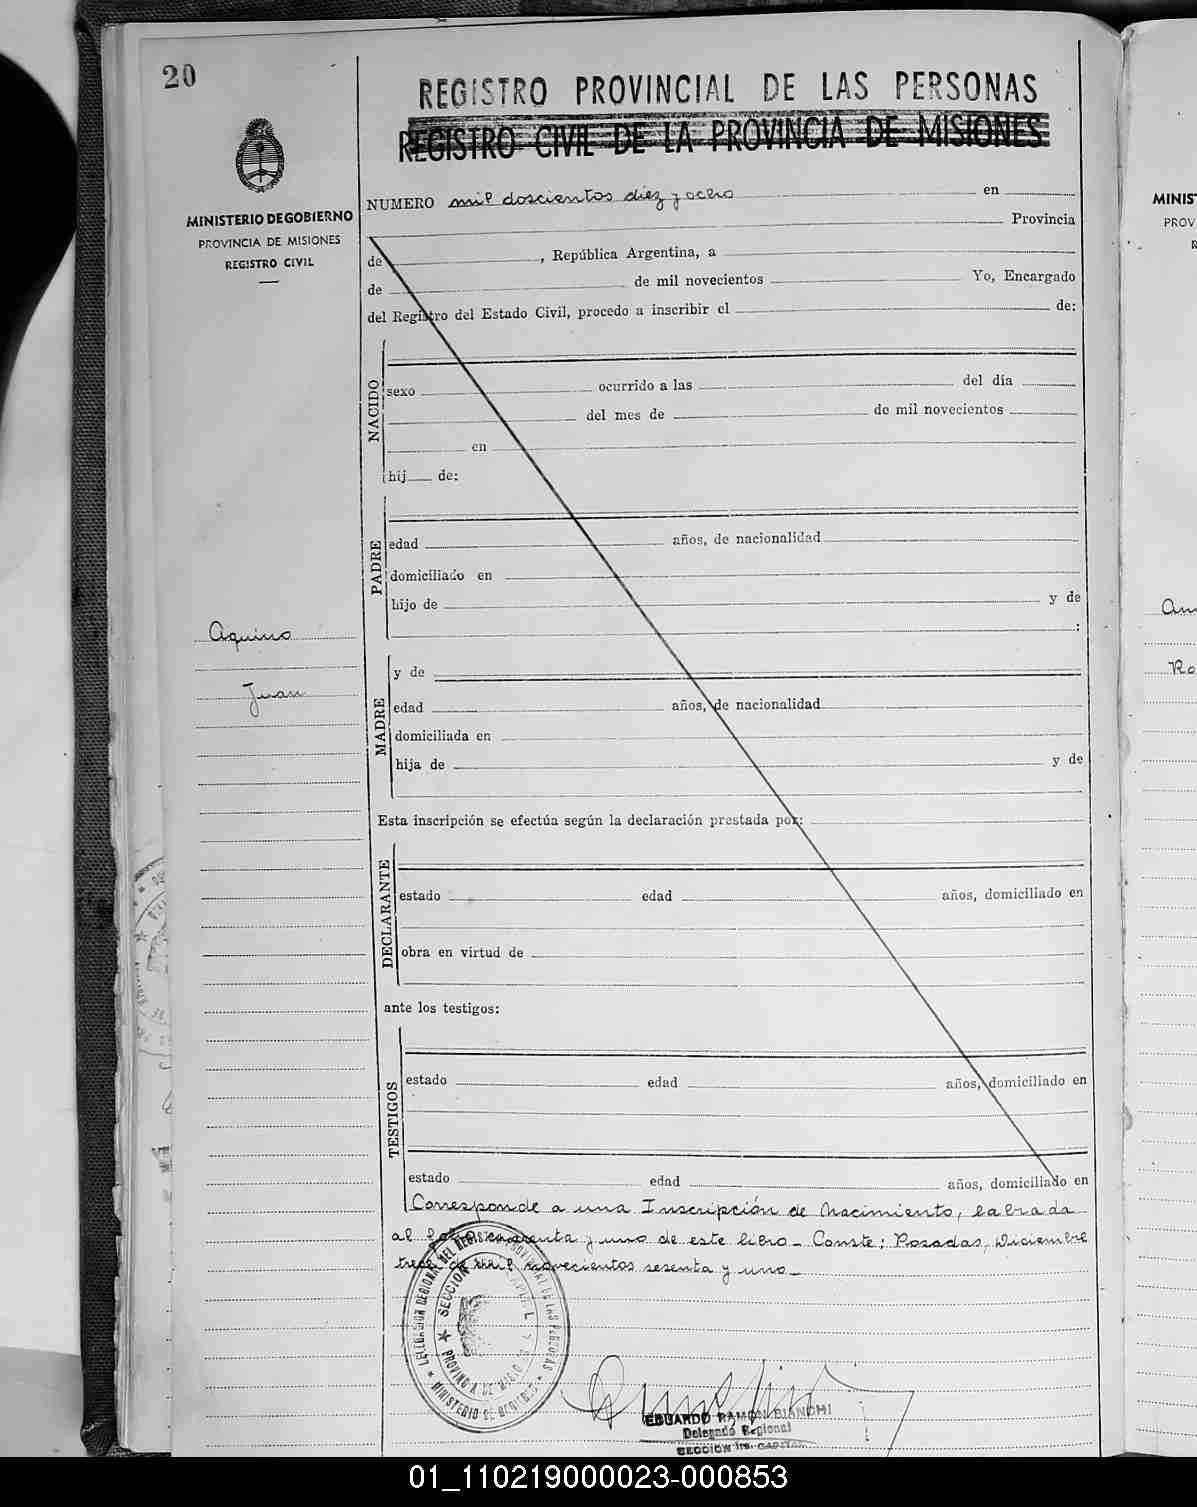 20
REGISTRO PROVINCIAL DE LAS PERSONAS
REGISTRO CIVIL DE LA PROVINCIA DE MISIONES
MINISTERIO DE GOBIERNO
PROVINCIA DE MISIONES
REGISTRO CIVIL
NUMERO mil doscientos diez y ocho en
Provincia
de , República Argentina, a
de de mil novecientos Yo, Encargado
del Registro del Estado Civil, procedo a inscribir el de:
NACIDO
sexo ocurrido a las del día
del mes de de mil novecientos
en
hij de:
PADRE
edad años, de nacionalidad
domiciliado en
hijo de y de
:
Aquino
Juan
MADRE
y de
edad años, de nacionalidad
domiciliada en
hija de y de
Esta inscripción se efectúa según la declaración prestada por:
DECLARANTE
estado edad años, domiciliado en
obra en virtud de
ante los testigos:
TESTIGOS
estado edad años, domiciliado en
estado edad años, domiciliado en
Corresponde a una Inscripción de Nacimiento, labrada
al folio cuarenta y uno de este libro - Conste: Posadas, Diciembre
trece de mil novecientos sesenta y uno -
DELEGACION REGIONAL DEL REGISTRO PROVINCIAL DE LAS PERSONAS
MINISTERIO DE GOBIERNO
SECCION
PROVINCIA DE MISIONES
EDUARDO RAMON BIANCHI
Delegado Regional
SECCION 1ra. CAPITAL
MINIS
PROV
R
An
Ro
01_110219000023-000853